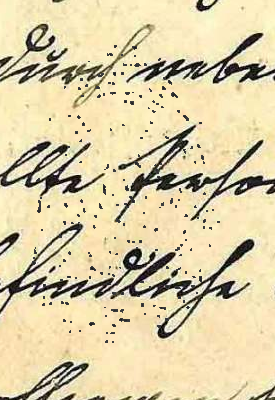 durch nebe
llte Person
findliche